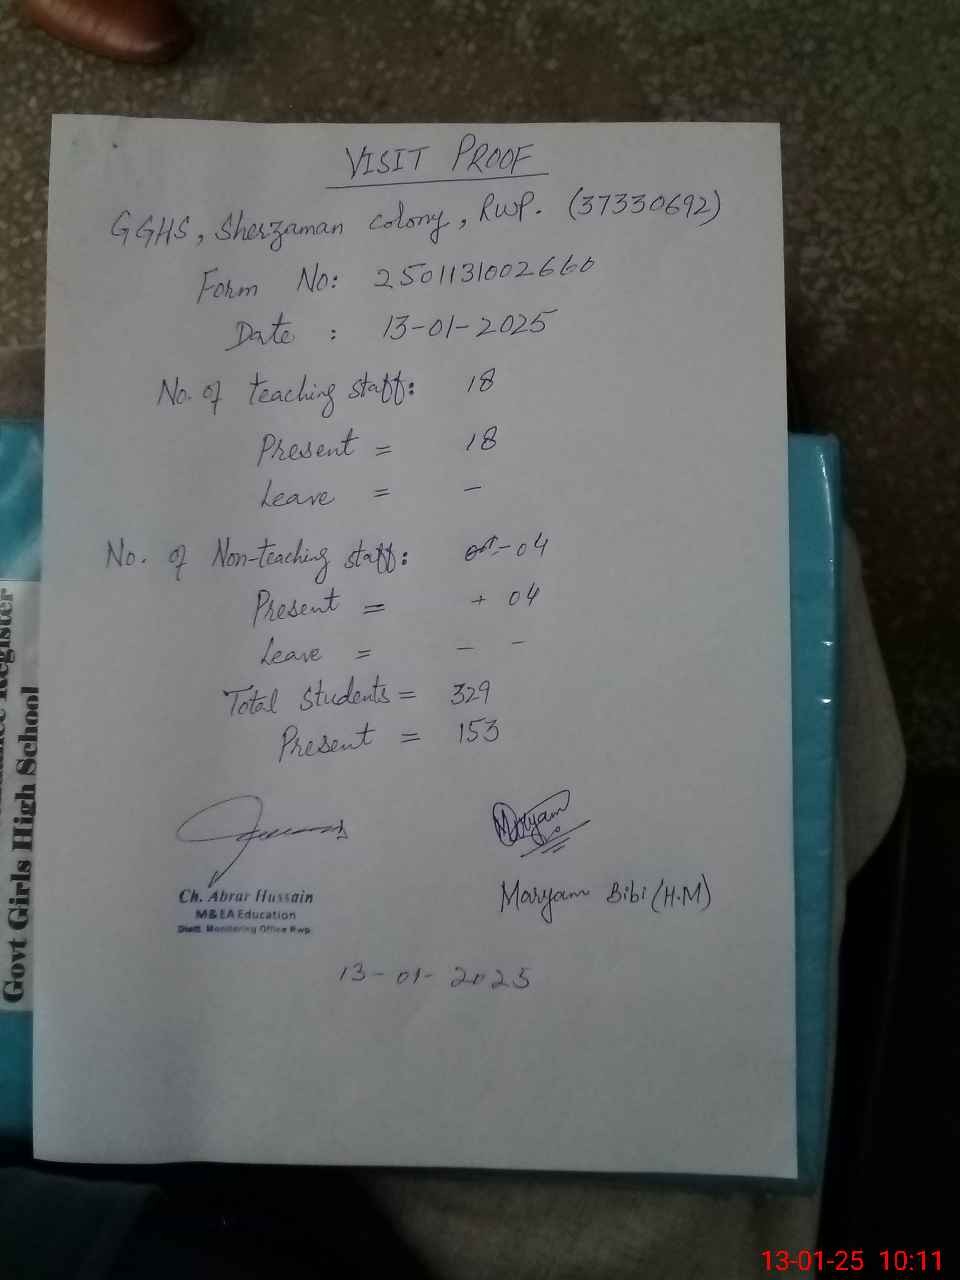 VISIT PROOF
GGHS, Sherzaman colony, RWP. (37330692)
Form No: 2501131002660
Date : 13-01-2025
No. of teaching staff: 18
Present = 18
Leave = -
No. of Non-teaching staff: - 04
Present = + 04
Leave = - -
Total Students = 329
Present = 153
Maryam
Ch. Abrar Hussain
M&EA Education
Distt. Monitoring Office Rwp
Maryam Bibi (H.M)
13-01-2025
Register
Govt Girls High School
13-01-25 10:11